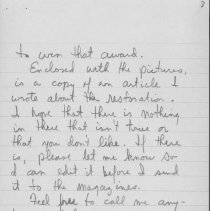 2
to win that award.
Enclosed with the pictures,
is a copy of an article I
wrote about the restoration.
I hope that there is nothing
in there that isn't true or
that you don't like. If there
is, please let me know so
I can edit it before I send
it to the magazines.
Feel free to call me any-